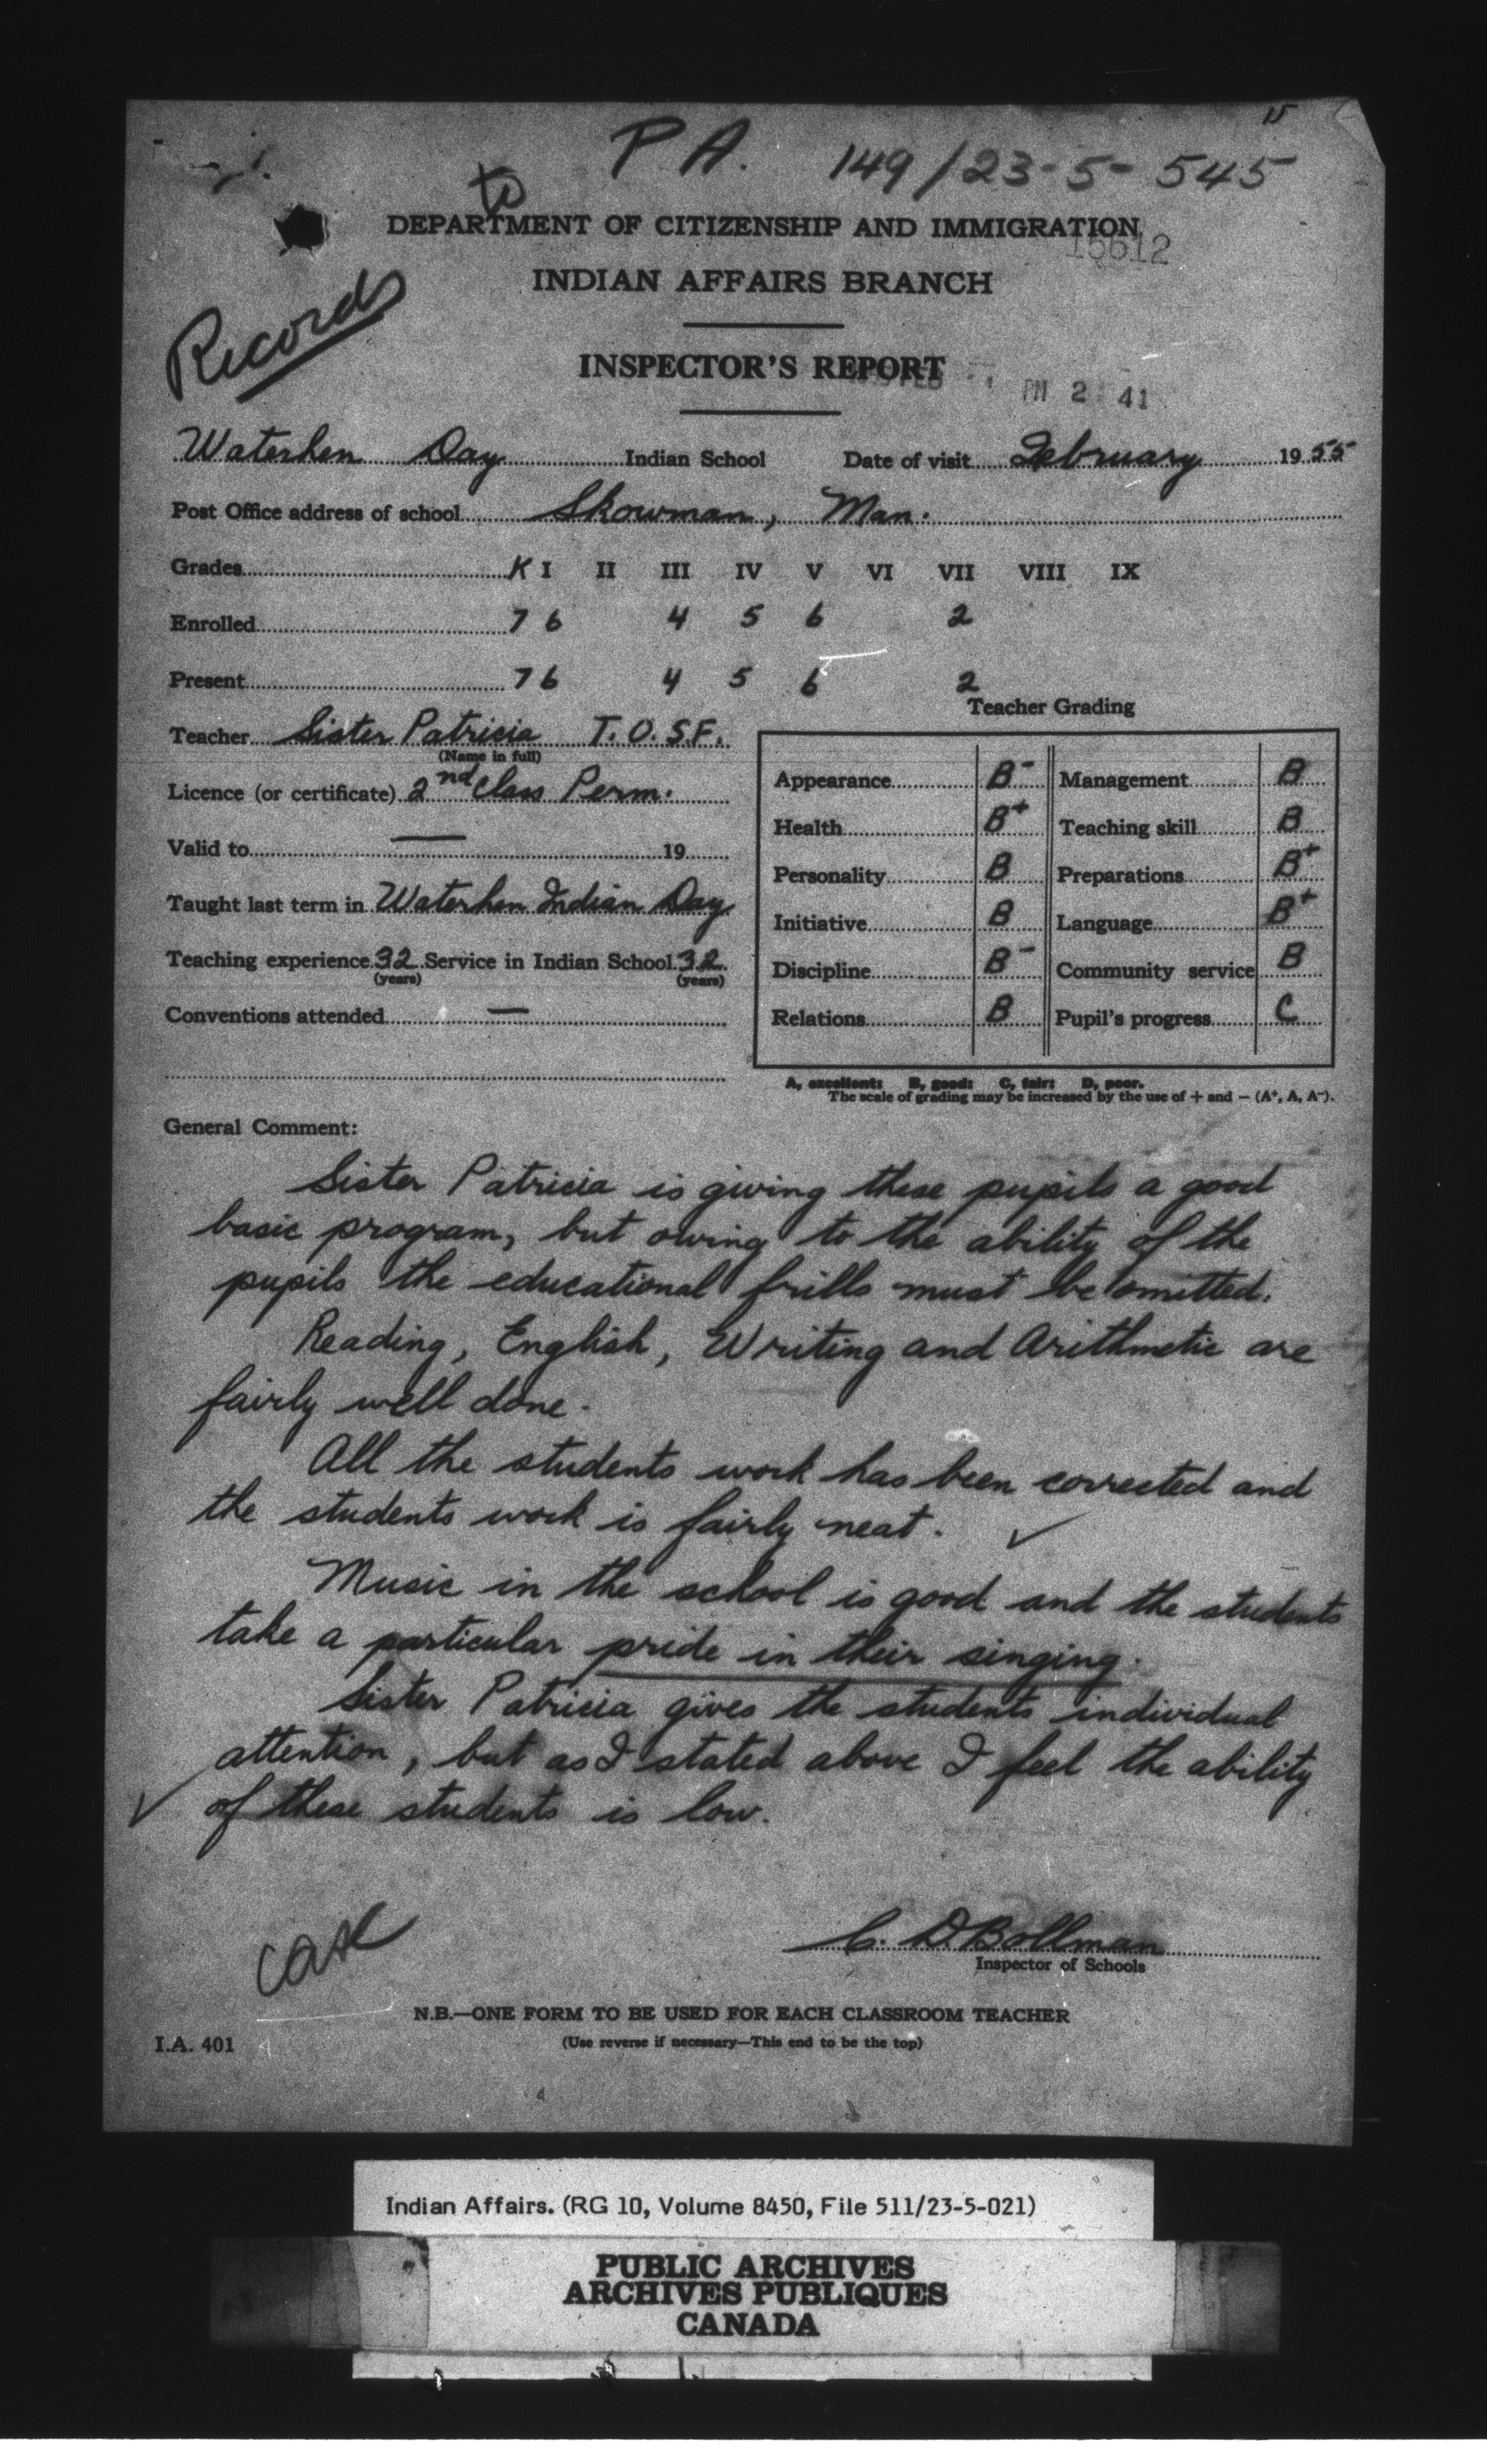 15
P.A. 149/23-5-545
to
DEPARTMENT OF CITIZENSHIP AND IMMIGRATION
15612
INDIAN AFFAIRS BRANCH
Records
INSPECTOR'S REPORT
PM 2 41
Waterhen Day Indian School Date of visit February 1955
Post Office address of school Skowman, Man.
Grades K I II III IV V VI VII VIII IX
Enrolled 7 6 4 5 6 2
Present 7 6 4 5 6 2
Teacher Grading
Teacher Sister Patricia T.O.S.F.
(Name in full)
Licence (or certificate) 2nd Class Perm.
Valid to — 19
Taught last term in Waterhen Indian Day
Teaching experience 32 Service in Indian School 32
(years) (years)
Conventions attended —
Appearance B- Management B
Health B+ Teaching skill B
Personality B Preparations B+
Initiative B Language B+
Discipline B- Community service B
Relations B Pupil's progress C
A, excellent: B, good: C, fair: D, poor.
The scale of grading may be increased by the use of + and − (A+, A, A-).
General Comment:
Sister Patricia is giving these pupils a good
basic program, but owing to the ability of the
pupils the educational frills must be omitted.
Reading, English, Writing and Arithmetic are
fairly well done.
All the students work has been corrected and
the students work is fairly neat. ✓
Music in the school is good and the students
take a particular pride in their singing.
Sister Patricia gives the students individual
attention, but as I stated above I feel the ability
✓ of these students is low.
C. D. Bollman
Inspector of Schools
N.B.—ONE FORM TO BE USED FOR EACH CLASSROOM TEACHER
(Use reverse if necessary—This end to be the top)
I.A. 401
Indian Affairs. (RG 10, Volume 8450, File 511/23-5-021)
PUBLIC ARCHIVES
ARCHIVES PUBLIQUES
CANADA